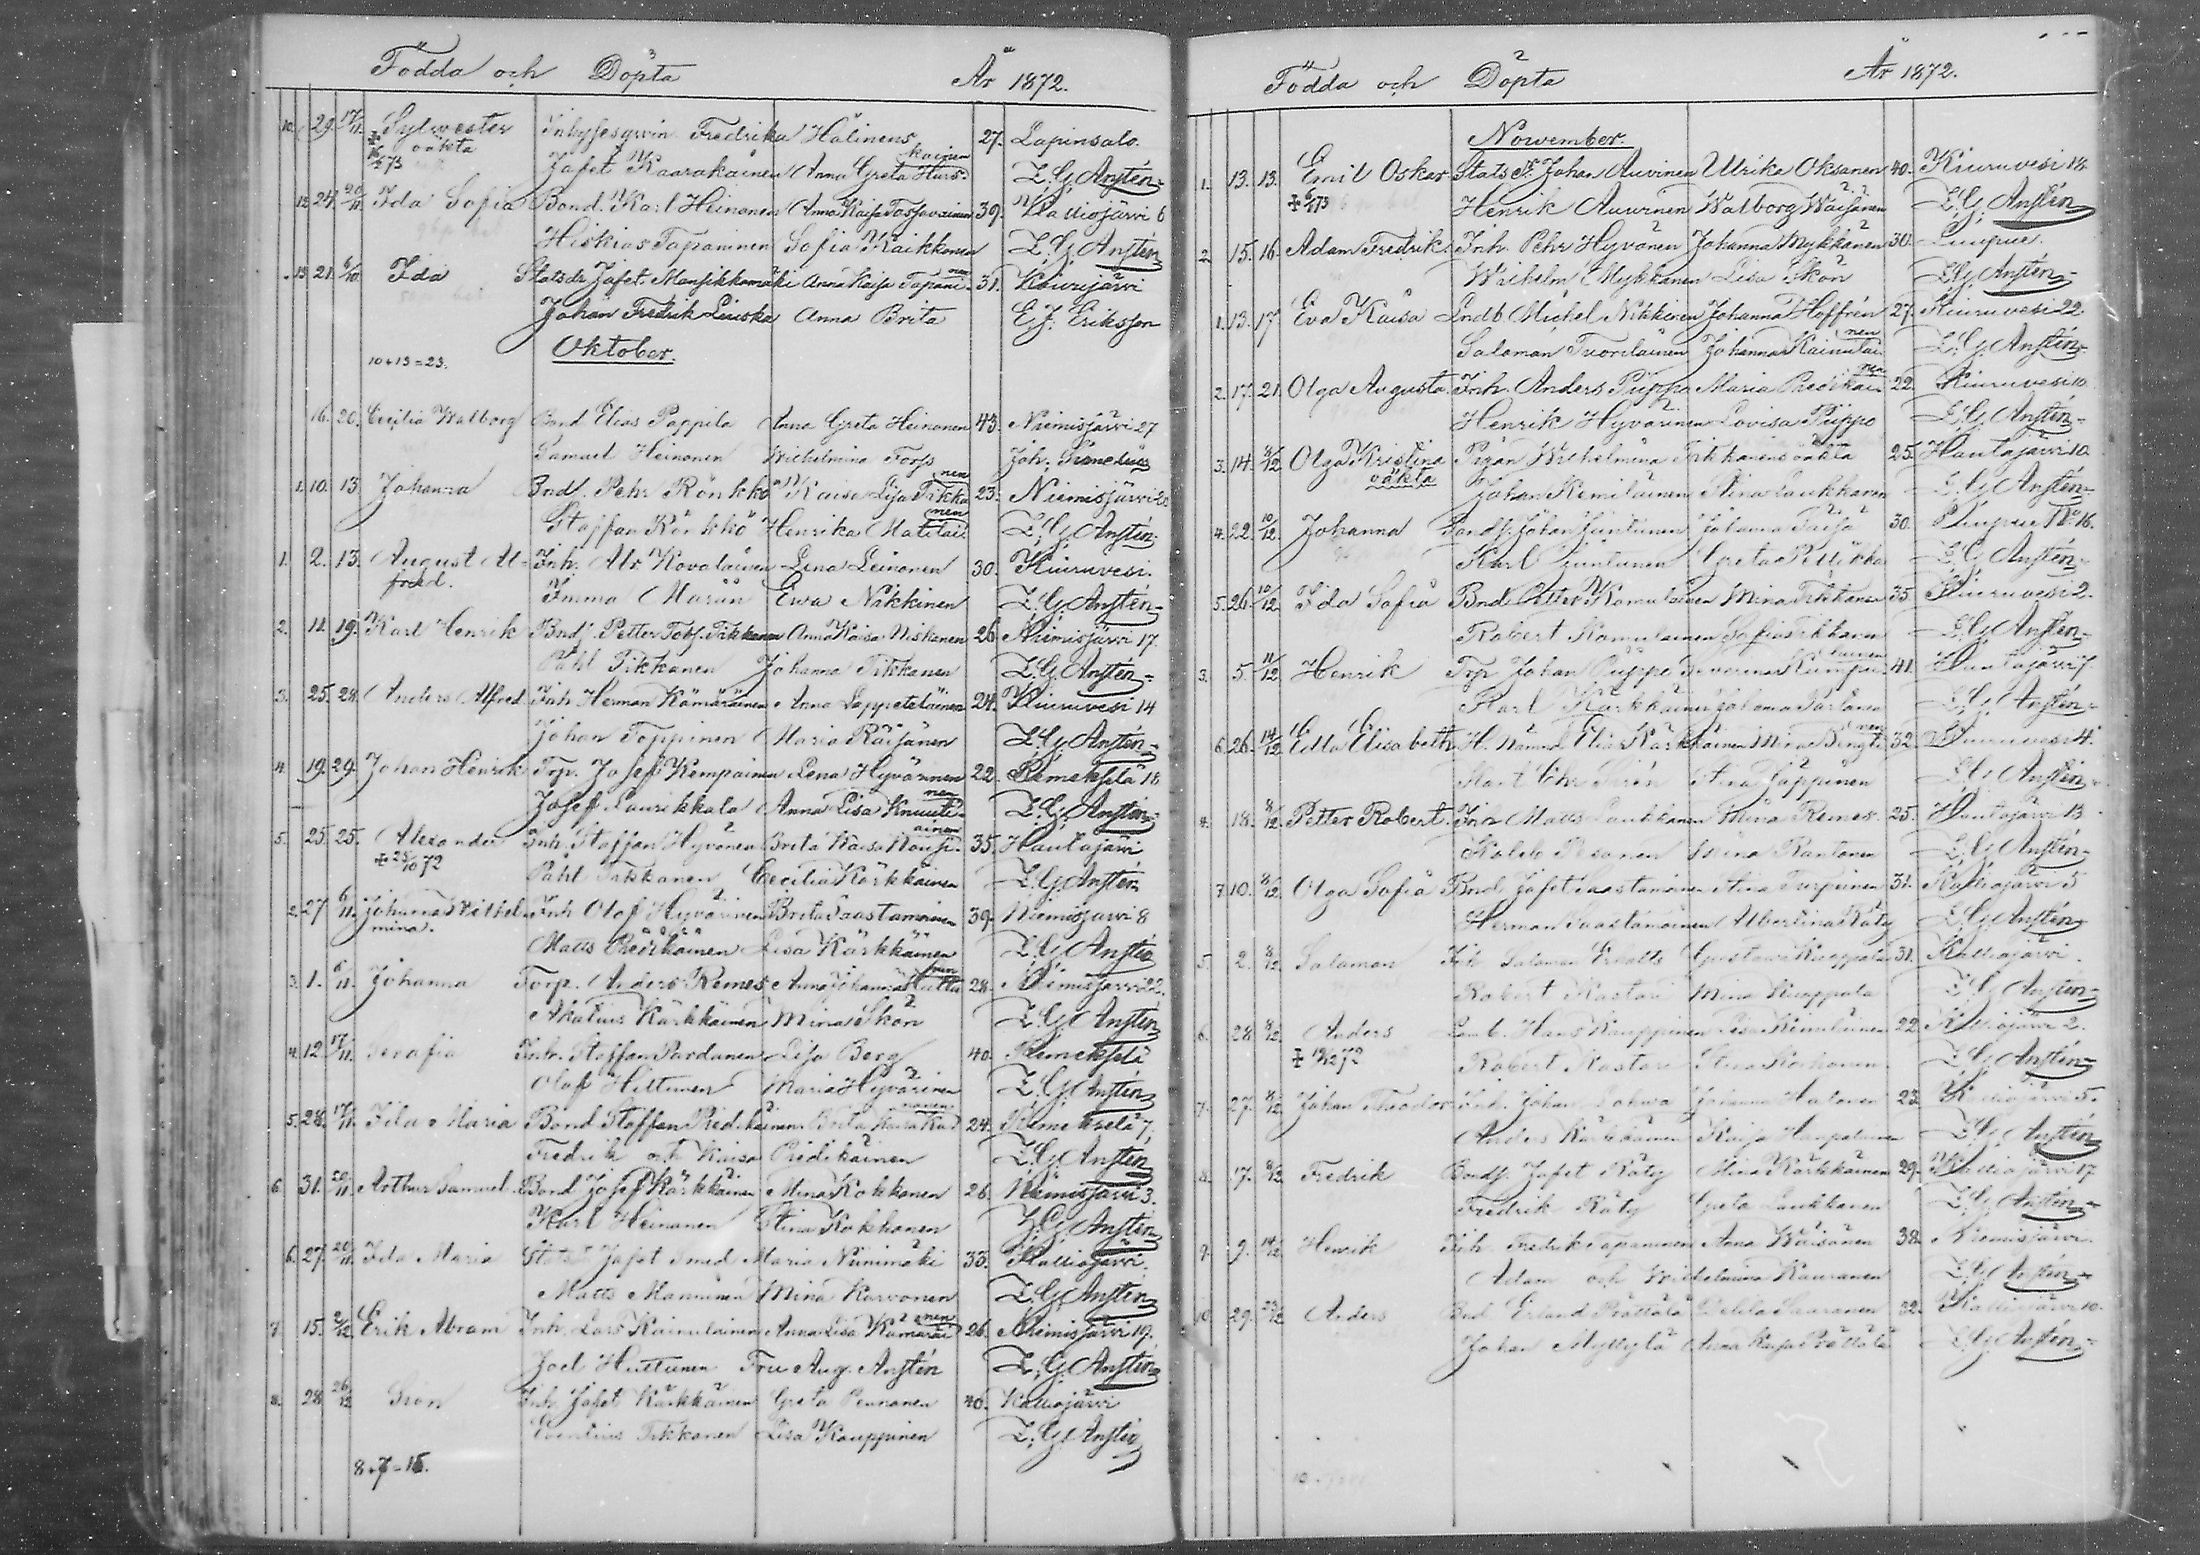 Födda och Döpta År 1872.
10. 29. 17/11 Sylwester Inhysesqwin Fredrika Hälinens 27. Lapinsalo.
oäkta kainen
Jafet Kaarakainen Anna Greta Hurs- L. G. Anstén
12. 24. 20/11 Ida Sofia Bond. Karl Heinonen Anna Kaisa 39. Kalliojärvi 6
Hiskias Tapaninen Sofia Kaikkonen L. G. Anstén
13. 21. 6/10 Ida Statsdr Jafet Mansikkamäki Anna Kaisa Tapani- nen 31. Kiurujärvi
Johan Fredrik Anna Brita E. J. Eriksson
10+13=23. Oktober.
16. 20. Cecilia Walborg Bond Elias Pappila Anna Greta Heinonen 43. Niemisjärvi 27
Samuel Heinonen Wilhelmina Forss Joh.
1. 10. 13 Johanna Bnd. Pehr Rönkkö Kaisa Lisa Tikka- nen 23. Niemisjärvi 20
Staffan Rönkkö Henrika Matilai- nen L. G. Anstén
1. 2. 13. August Al- Inh. Abr Kovalainen Lena Leinonen 30. Kiuruvesi.
fred. Immo Marin Ewa Nikkinen L. G. Anstén
2. 11. 19. Karl Henrik Bndj. Petter Tobs. Tikkanen Anna Kaisa Niskanen 26. Niemisjärvi 17.
Påhl Tikkanen Johanna Tikkanen L. G. Anstén
3. 25. 28. Anders Alfred Inh Herman Kämäräinen Anna Lappeteläinen 24. Kiuruvesi 14
Johan Toppinen Maria Räisänen L. G. Anstén
4. 19. 29. Johan Henrik Torp. Josef Kempainen Lena Hyvärinen 22. Remekselä 18
Josef Laurikkala Anna Lisa Knuuti- nen L. G. Anstén
5. 25. 25. Alexander Inh. Staffan Hyvönen Brita Kaisa 35. Hautajärvi
25/10 72 Påhl Tikkanen Cecilia Kärkkäinen L. G. Anstén
2. 27. 6/11. Johanna Wilhel- Inh Olof Hyvärinen Brita Saastamoinen 39. Niemisjärvi 8
mina. Matts Predikainen Lisa Kärkkäinen L. G. Anstén
3. 1. 6/11. Johanna Torp. Anders Remes Anna Johanna 28. Niemisjärvi 22.
Akatius Kärkkäinen Mina Skön L. G. Anstén
4. 12. 17/11. Serafia Inh. Staffan Pardanen Lisa Berg 40. Remekselä
Olof Hiltunen Maria Hyvärinen L. G. Anstén
5. 28. 17/11. Ida Maria Bond Staffan Predikainen Brita Kaisa 24. Remekselä 7,
Fredrik och Kaisa Predikäinen L. G. Anstén
6. 31. 20/11. Arthur Samuel. Bond Josef Kärkkäinen Mina Kokkonen 26. Niemisjärvi 3.
Karl Heinonen Stina Kokkonen L. G. Anstén
6. 27. 20/11. Ida Maria Jafet Smed Maria Niinimäki 33. Kalliojärvi.
Matts Manninen Mina Korvonen L. G. Anstén
7. 15. 2/12 Erik Abram Inh. Lars Kainulainen Anna Lisa Kämäräi- nen 26. Niemisjärvi 19.
Joel Huttunen Fru Aug. Anstén L. G. Anstén
8. 28. 26/12 Inh Jafet Kärkkäinen Greta Pennanen 40. Kalliojärvi
Tikkanen Lisa Kauppinen L. G. Anstén
8+7=15.
Födda och Döpta År 1872.
November.
1. 13. 13. Emil Oskar Stats Johan Auvinen Ulrika Oksanen 40. Kiuruvesi 18
Henrik Auvinen Walborg Waisänen L. G. Anstén
2. 15. 16. Adam Fredrik Inh. Pehr Hyvönen Johanna Mykkänen 30. Luupue.
Wilhelm Mykkänen Lisa Skön L. G. Anstén
1. 13. 17 Eva Kaisa Landb. Michel Nikkinen Johanna Hoffrén 27. Kiuruvesi 22
Salomon Tuorilainen Johanna Kainulai- nen L. G. Anstén
2. 17. 21. Olga Augusta. Inh. Anders Piippo Maria Predikai- nen 22. Kiuruvesi 10
Henrik Hyvärinen Lovisa Piippo L. G. Anstén
3. 14. 8/12 Olga Kristina Pigan Wilhelmina Tikkanens oäkta 25. Hautajärvi 10.
oäkta Johan Kemiläinen Stina Laukkanen L. G. Anstén
4. 22. 10/12 Johanna Johan Juntunen Johanna 30. Luupue No 16.
Karl Juntunen Greta L. G. Anstén
5. 26. 10/12 Ida Sofia Bnd. Petter Komulainen Mina Tikkanen 35 Kiuruvesi 2.
Robert Komulainen Sofia Tikkanen L. G. Anstén
3. 5. 11/12 Henrik Torp Johan Piippo 41. Hautajärvi 7
Karl Kärkkäinen Johanna L. G. Anstén
6. 26. 14/12 Edla Elisabeth H. Nämnd. Elias Kärkkäinen Mina 32. Kiuruvesi 4.
Stina Jäppinen L. G. Anstén
4. 18. 8/12. Petter Robert. Inh Matts Laukkanen Stina Remes. 25. Hautajärvi 13
Kaleb Pesonen Stina Rantanen L. G. Anstén
7. 10. 8/12. Olga Sofia Bnd. Jafet Saastamoinen Stina Turpeinen 31. Kalliojärvi 5
Herman Saastamoinen Albertina Räty L. G. Anstén
5. 2. 8/12 Salomon Inh Salomon Gustava 31. Kalliojärvi.
Robert Kastari Mina L. G. Anstén
6. 28 8/12. Anders Hans Kauppinen Lisa Kemiläinen 22. Kalliojärvi 2.
Robert Kastari Stina Korhonen L. G. Anstén
7. 27. 8/12. Johan Theodor Inh. Johan Johanna Halonen 23. Kalliojärvi 5.
Anders Kärkkäinen Kaisa L. G. Anstén
8. 17. 8/12 Fredrik Bondj. Jafet Räty Stina Kärkkäinen 29. Kalliojärvi 17
Fredrik Räty Greta Laukkanen L. G. Anstén
9. 9. 14/12 Henrik Inh. Fredrik Tapaninen Anna Wäisänen 38. Niemisjärvi.
Adam och Wilhelmina Kauranen L. G. Anstén
10. 29. 23/12 Anders Bnd. Erland Prättälä 32. Kalliojärvi 10.
Johan Myllylä Anna Kaisa Prättälä L. G. Anstén